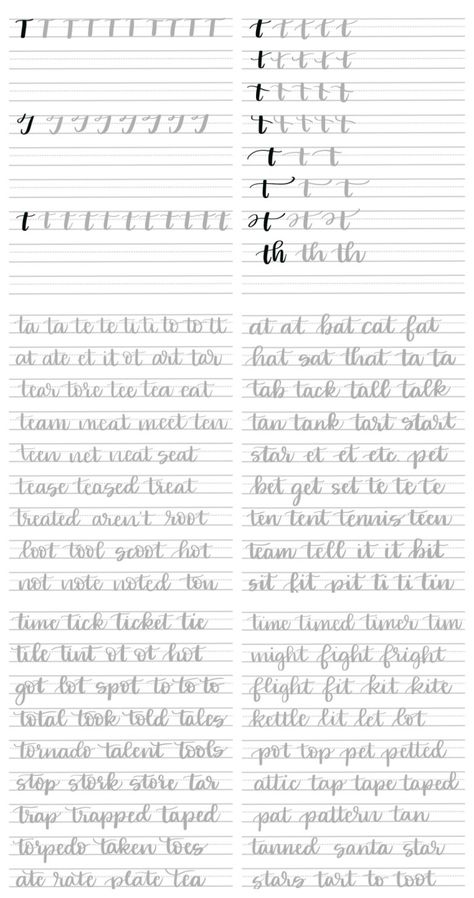 T T T T T T T T T
T T T T T T T T
t t t t t t t t t t
t t t t t
t t t t t
t t t t t
t t t t t
t t t
t t t
at at at
th th th
ta ta te te ti ti to to tt
at ate et it ot art tar
tear tore tee tea eat
team meat meet ten
teen net neat seat
tease teased treat
treated aren't root
loot tool scoot hot
not note noted ton
at at bat cat fat
hat sat that ta ta
tab tack tall talk
tan tank tart start
star et et etc. pet
bet get set te te te
ten tent tennis teen
team tell it it bit
sit fit pit ti ti tin
time tick ticket tie
tile tint ot ot hot
got lot spot to to to
total took told tales
tornado talent tools
stop stork store tar
trap trapped taped
torpedo taken toes
ate rate plate tea
time timed timer tim
might fight fright
flight fit kit kite
kettle lit let lot
pot top pet petted
attic tap tape taped
pat pattern tan
tanned santa star
stars tart to toot